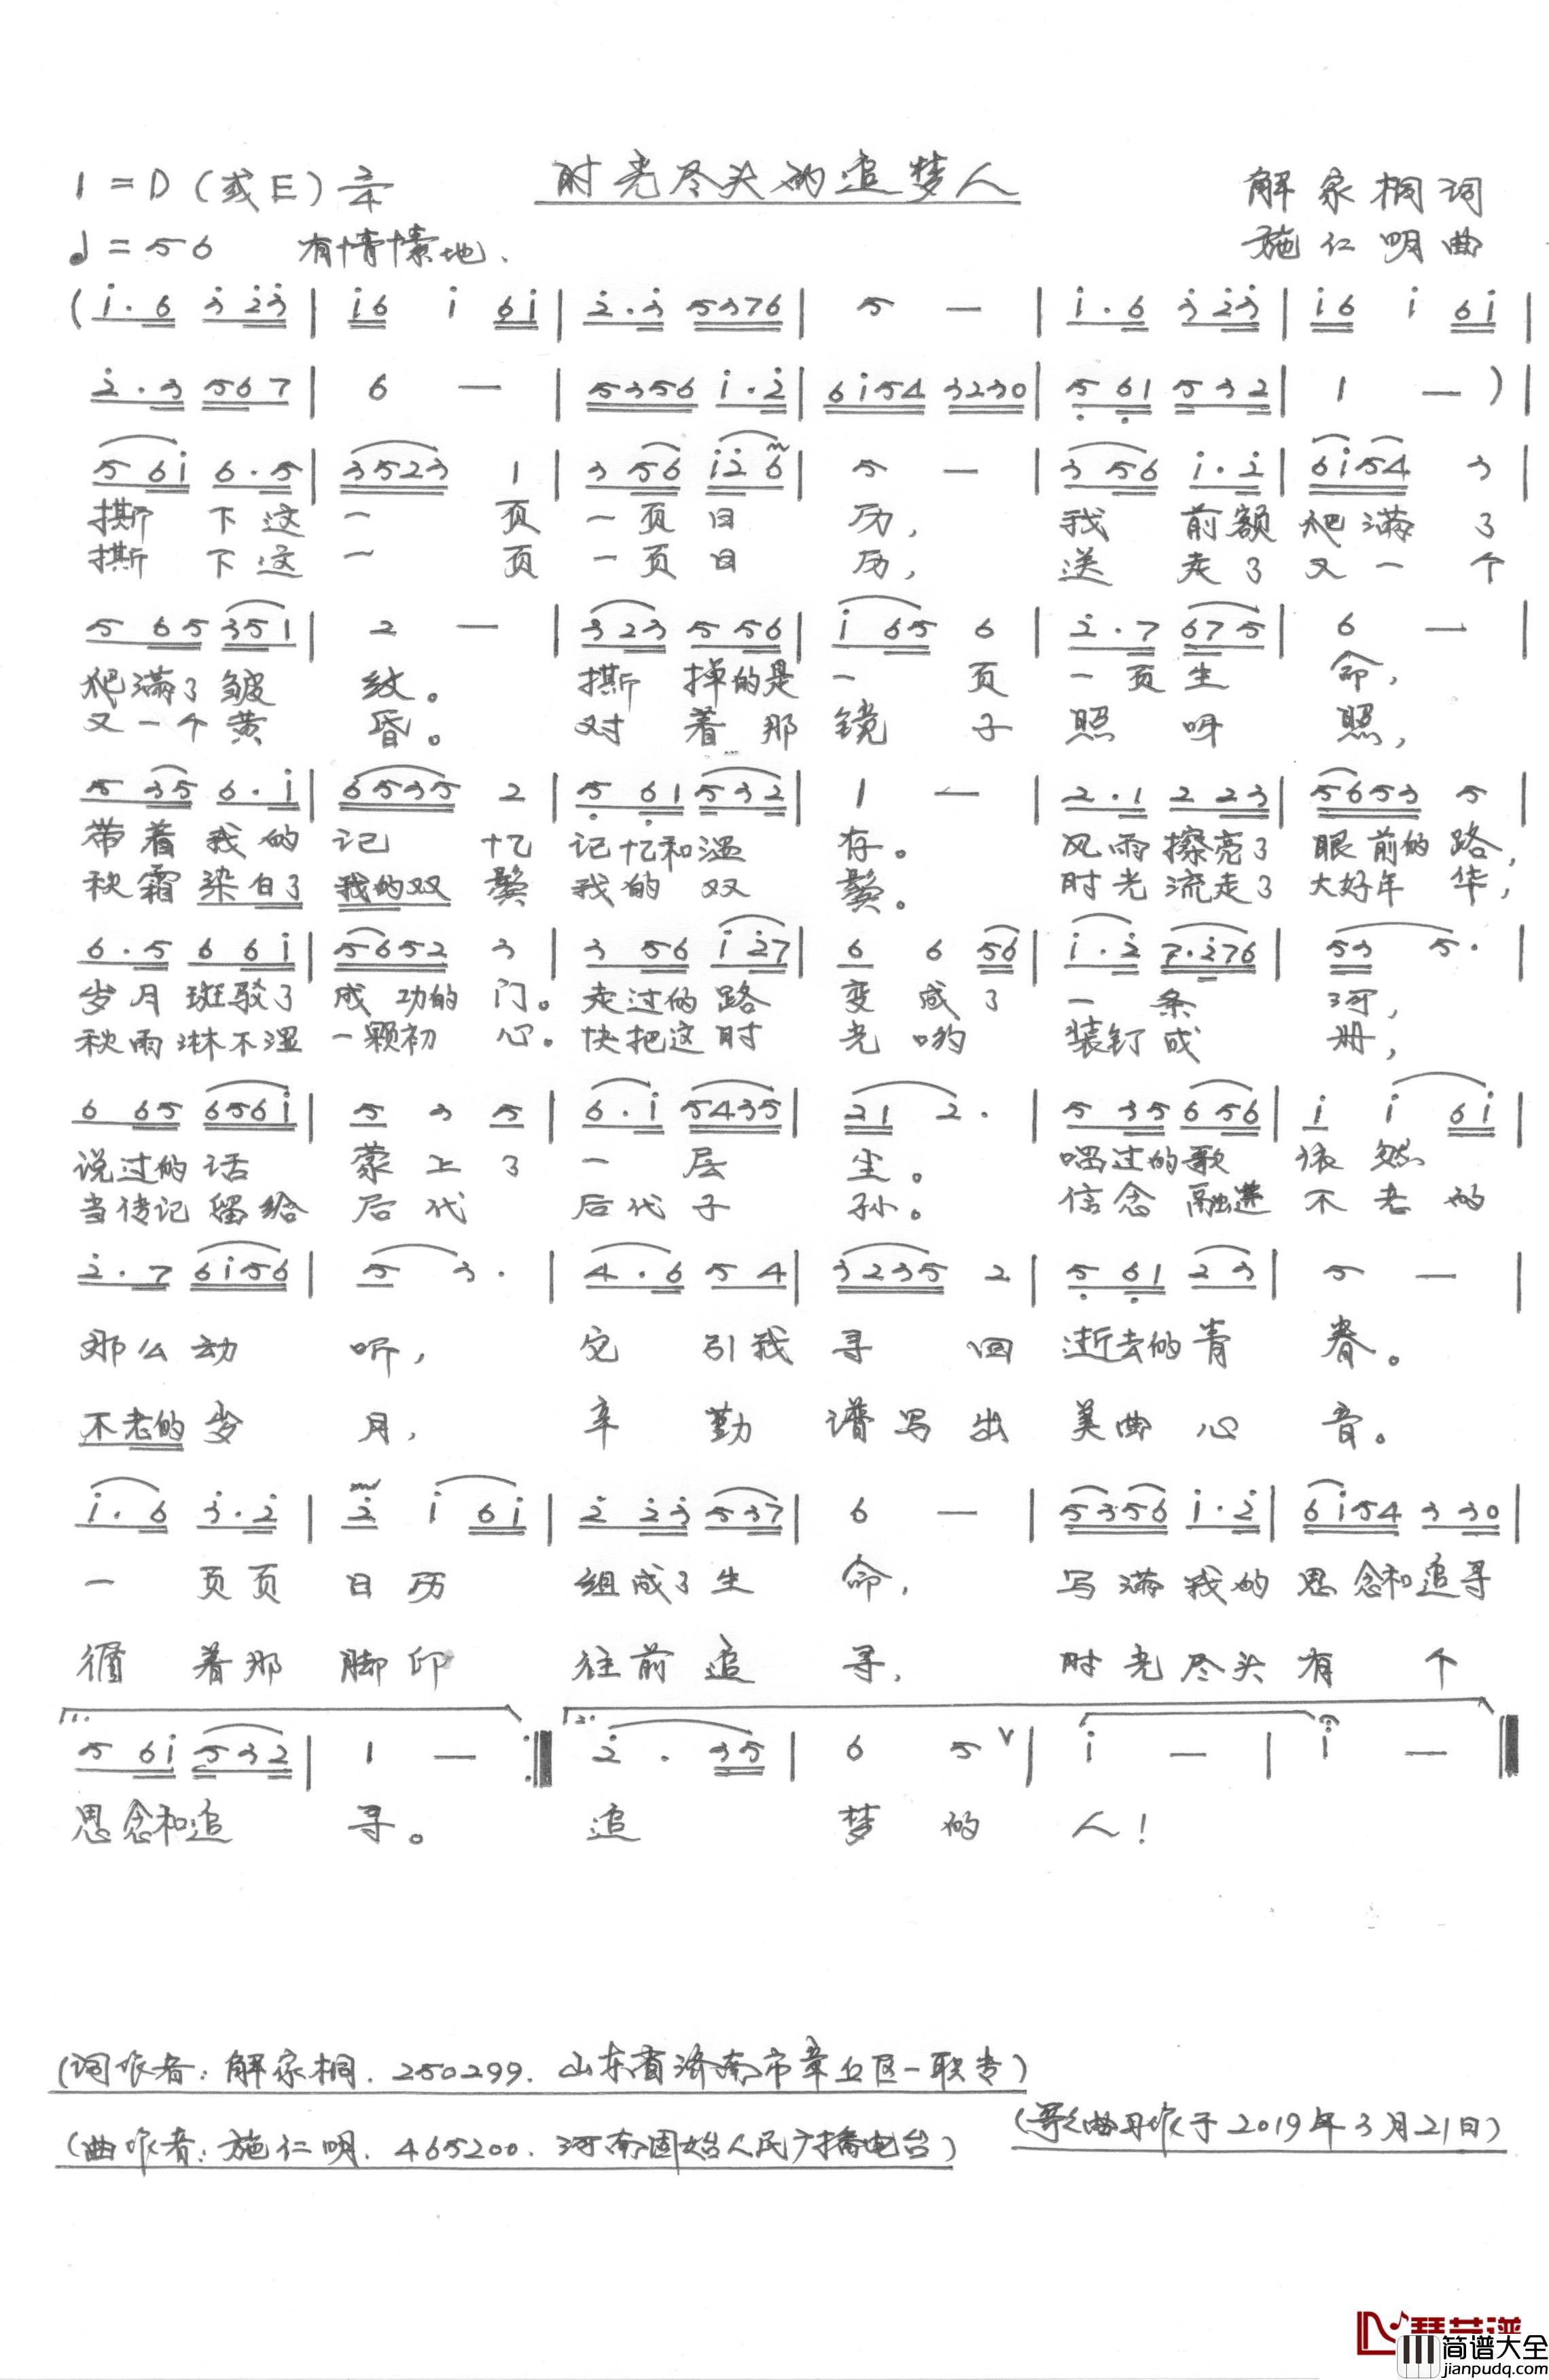 时光尽头的追梦人
1=D(或E) 2/4
解家桐词
♩=56 有情愫地.
施仁明曲
(i·6 3 23|i6 i 6i|2·3 5376|5 —|i·6 3 23|i6 i 6i|
2·3 567|6 —|5356 i·2|6i54 3230|5 61 532|1 —)|
5 6i 6·5|3523 1|3 56 i2 6|5 —|3 56 i·2|6i54 3|
撕下这一页一页日历,我前额爬满了
撕下这一页一页日历,送走了又一个
5 65 351|2 —|323 5 56|i 65 6|2·7 675|6 —|
爬满了皱纹。撕掉的是一页一页生命,
又一个黄昏。对着那镜子照呀照,
5 35 6·i|6535 2|5 61 532|1 —|2·1 2 23|5653 5|
带着我的记忆记忆和温存。风雨擦亮了眼前的路,
秋霜染白了我的双鬓我的双鬓。时光流走了大好年华,
6·5 6 6i|5652 3|3 56 i 27|6 6 56|i·2 7·276|53 5·|
岁月斑驳了成功的门。走过的路变成了一条河,
秋雨淋不湿一颗初心。快把这时光哟装钉成册,
6 65 656i|5 3 5|6·i 5435|21 2·|5 35 656|i i 6i|
说过的话蒙上了一层尘。唱过的歌依然
当传记留给后代后代子孙。信念融进不老的
2·7 6i56|5 3·|4·6 5 4|3235 2|5 61 2 3|5 —|
那么动听,它引我寻回逝去的青春。
不老的岁月,辛勤谱写出美曲心音。
i·6 3·2|2 i 6i|2 23 537|6 —|5356 i·2|6i54 3 30|
一页页日历组成了生命,写满我的思念和追寻
循着那脚印往前追寻,时光尽头有个
1. 5 6i 532|1 —:‖2. 2·35|6 5 ∨|i —|i —‖
思念和追寻。追梦的人!
(词作者:解家桐.250299.山东省济南市章丘区一职专)
(歌曲写作于2019年3月21日)
(曲作者:施仁明.465200.河南固始人民广播电台)
琴艺谱
简谱大全
jianpudq.com